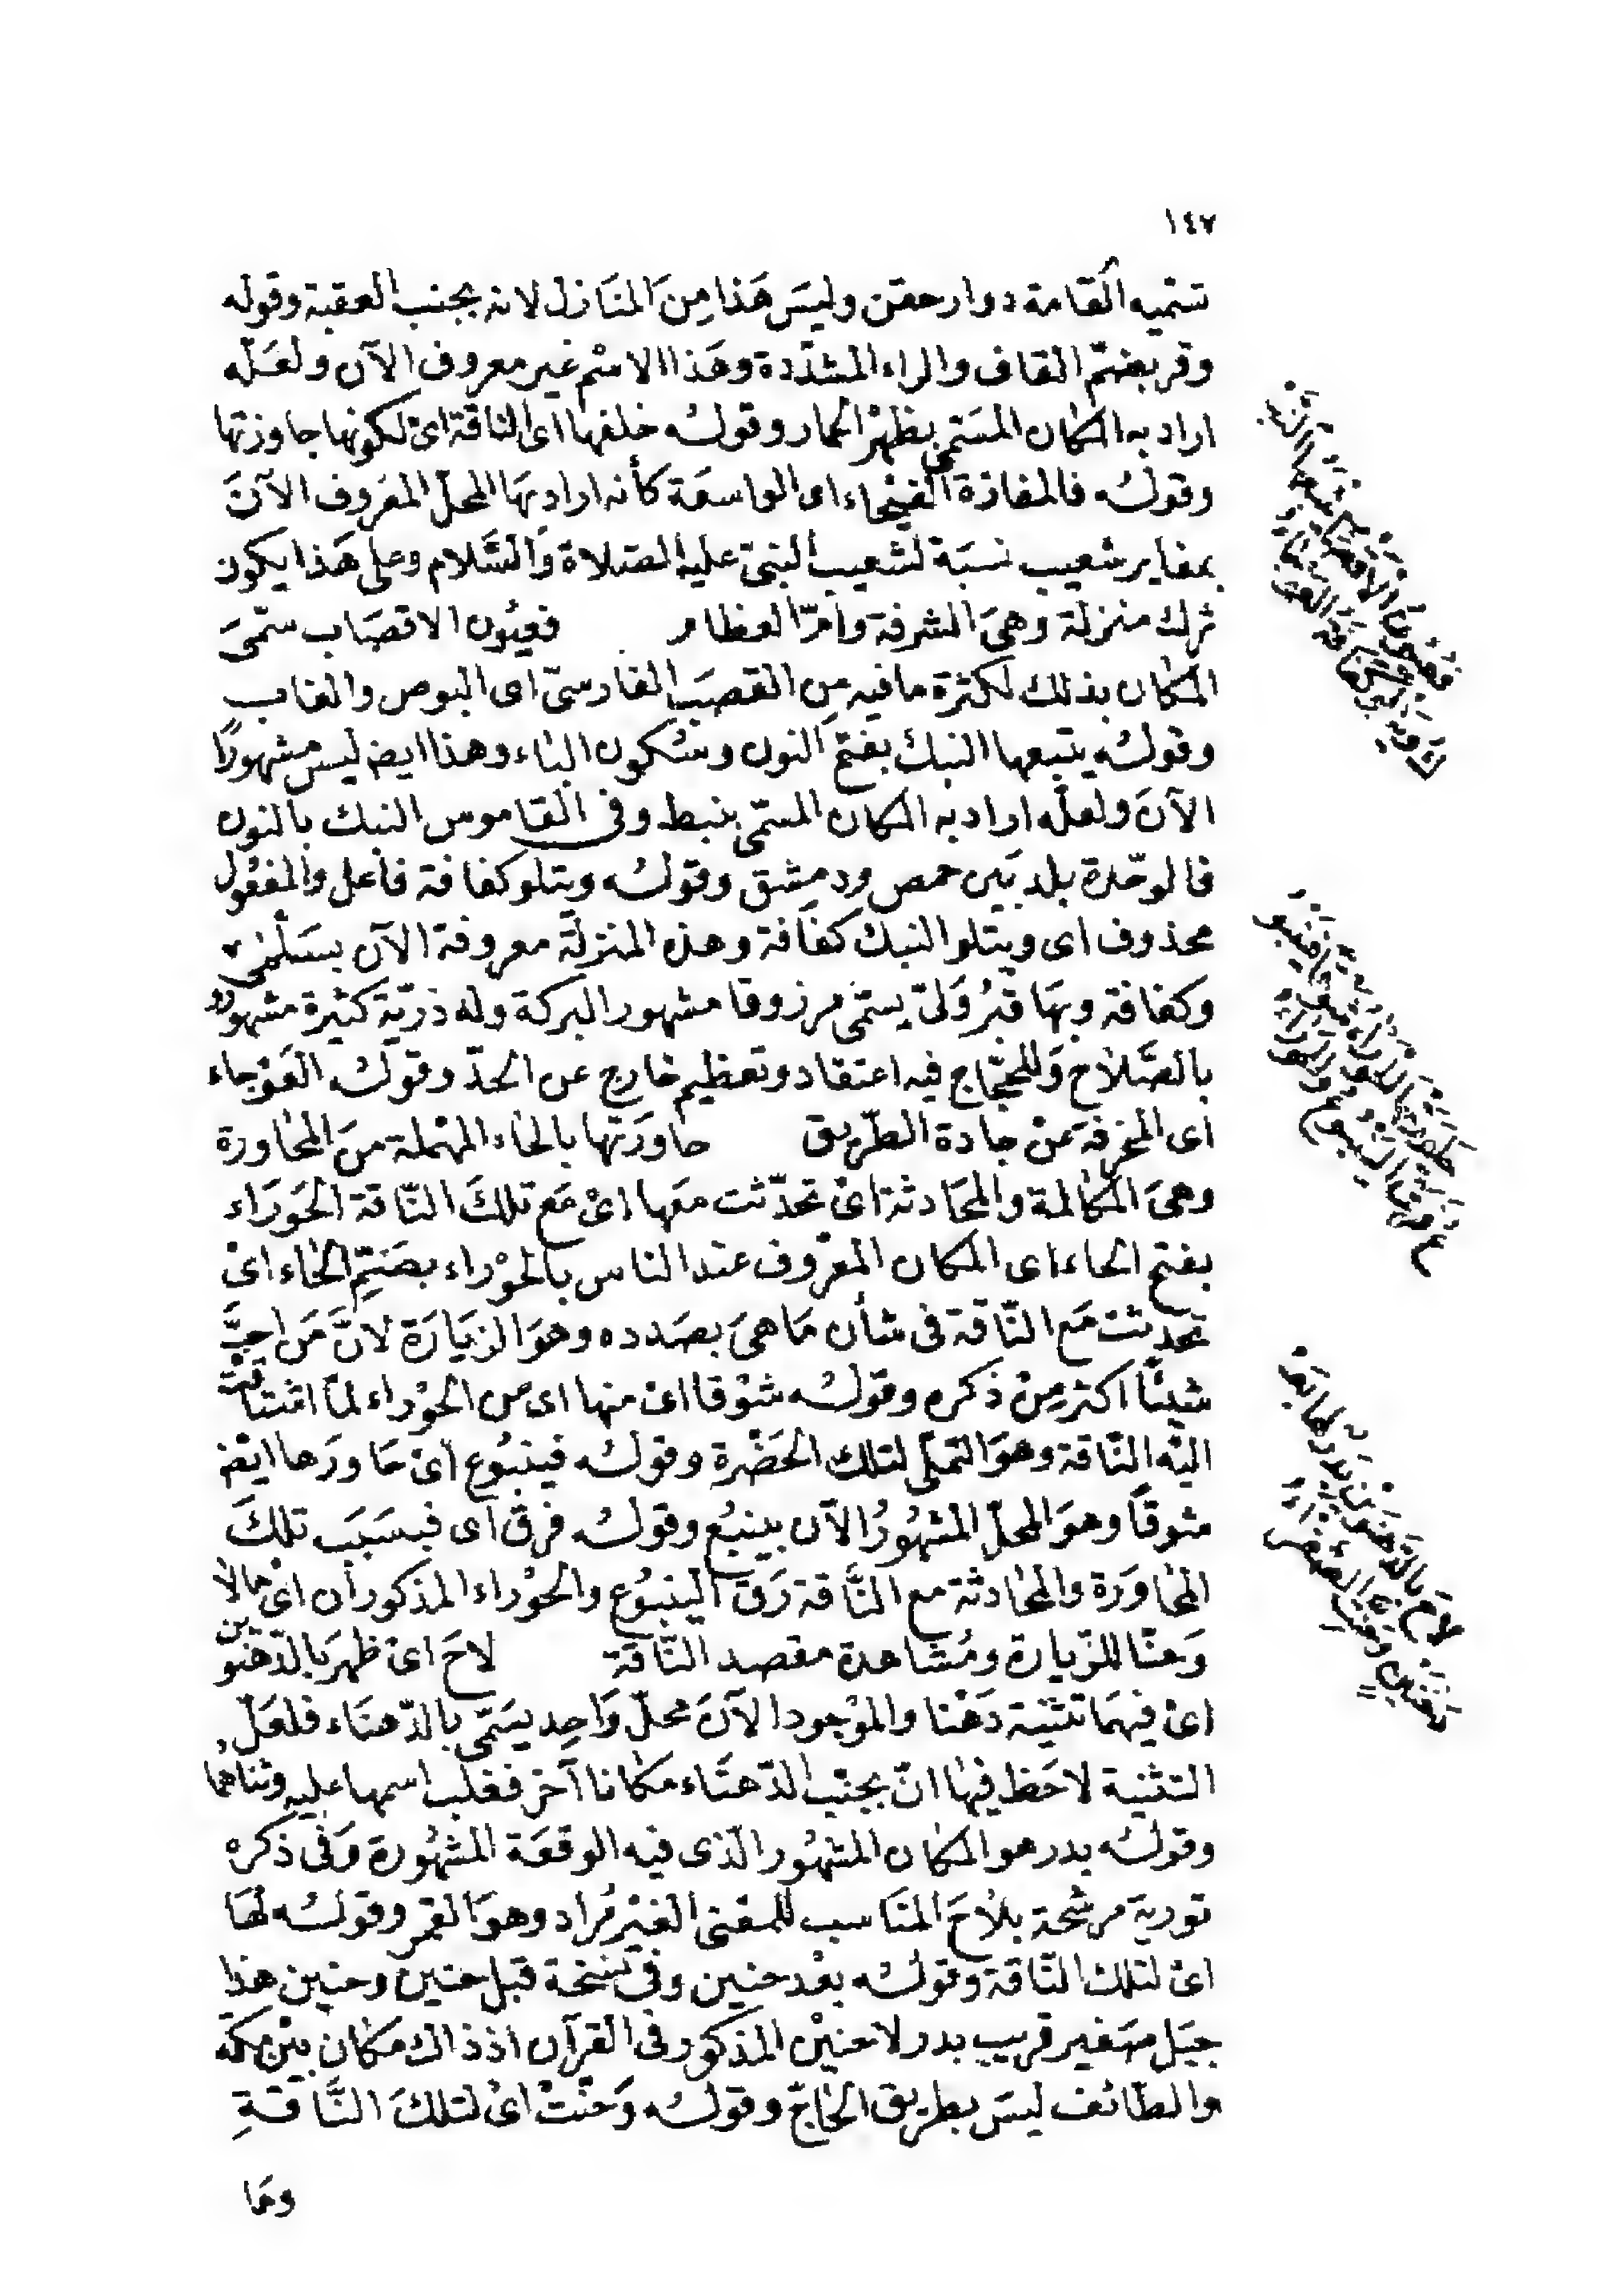 ١٤٧
تسميه العامة دوار حقن وليسَ هَذا مِنَ المنَازل لانه بجنب العقبة وقوله
وقر بضمّ القاف والراء المشدّدة وهَذا الاسْم غير معروف الآن ولعَلّه
اراد به المكان المسَمى بظهْر الحمار وقولـُه خلفها اى الناقة اىْ لكونها جاوزتها
وقولـُه فالمفازة الفيْحاء اى الواسعَة كأنه اراد بهَا المحلّ المعَروف الآنَ
بمغاير شعيب نسبَة لشعيب النبىّ عليه الصّلاة وَالسَّلام وعلى هَذا يكون
ترك منزلة وهىَ الشرفة وامّ العظام فعيُون الاقصَاب سمّىَ
المكان بذلك لكثرة ما فيه مِن القصَب الفارسىّ اى البوص والغاب
وقولـُه يتبعها النبك بفتح النون وسُكون الباء وهذا ايضا ليس مشهورًا
الآنَ ولعلّه اراد به المكان المسمّى بنبط وفى القاموس النبك بالنون
فالموحّدة بلد بَين حمص ودمشق وقولـُه ويتلو كفافة فاعل والمفعُول
محذوف اى ويتلو النبك كفَافة وهذه المنزلَة معروفة الآن بسَلمْى
وكفافة وبهَا قبْرُ وَلىّ يسمّى مرزوقا مشهور البركة وله ذرّيّة كثيرة مشهورُ
بالصَّلاح وَللحجّاج فيه اعتقاد وتعظيم خارج عن الحدّ وقولـُه العَوْجاء
اى المنحرفة عَنْ جادة الطّريق حاورَتها بالحاء المهْملة منَ المحَاورة
وهىَ المكالمة والمحَادثة اىْ تحدّثت معَها اىْ مَع تلكَ النّاقة الحَوَرَاء
بفتح الحاء اى المكان المعْرُوف عند الناس بالحوْراء بضَمِّ الحَاء اىْ
تحدثت مَع النّاقة فى شأن مَا هىَ بصَدده وهوَ الزيَارَة لانَّ مَن احبَّ
شيئًا اكثر مِنْ ذكره وقولـُه شوْقا اىْ منها اى من الحوْراء لمّا اشتاقت
اليْه النّاقة وهوَ التمَلّى لتلك الحَضْرة وقولـُه فينبُوع اىْ حَاورَها ايْضا
شوقاً وهوَ المحلّ المشهُورُ الآن بينبُع وقولـُه فرقّ اى فبسَبَب تلكَ
المحَاوَرة والمحَادثة مع النَّاقة رَقّ الينبُوع والحوْراء المذكوران اىْ مالا
وَحنّا للزّيارة ومُشَاهدة مقصد النَّاقة لاحَ اىْ ظهرَ بالدّهنوين
اىْ فيهمَا تثنية دَهْنا والموْجود الآنَ محلّ وَاحِد يسَمّى بالدّهنَاء فلعَلّ
التثنية لاحَظ فيهَا انّ بجنْب الدّهنَاء مكانا آخر فغلّب اسمها عليه وثنّاهُما
وقولـُه بدر هو المكان المشهُور الّذى فيه الوقعَة المشهُورة وَفى ذكرهْ
تورية مرشحة بلاحَ المنَاسب للمعْنى الغيْر مُراد وهوَ القمر وقولـُه لهَا
اىْ لتلك النّاقة وقولـُه بعْد حنين وفى نسْخة قبل حنين وحنين هذا
جبَل صَغير قريب بدر لا حنيْن المذكور فى القرآن اذ ذاك مكان بيْن مكة
والطّائف ليسَ بطريق الحَاجّ وقولـُه وَحنّتْ اىْ لتلكَ النَّاقةِ
وحَا
فعيون الاقصاب يتبعها النبك
ويتلو كفافة العوجاء
حاورتها الحوراء شوقا فينبوع
فرق الينبوع والحوراء
لاح بالدهنوين بدر لها بعد
حنين وحنت الصفراء